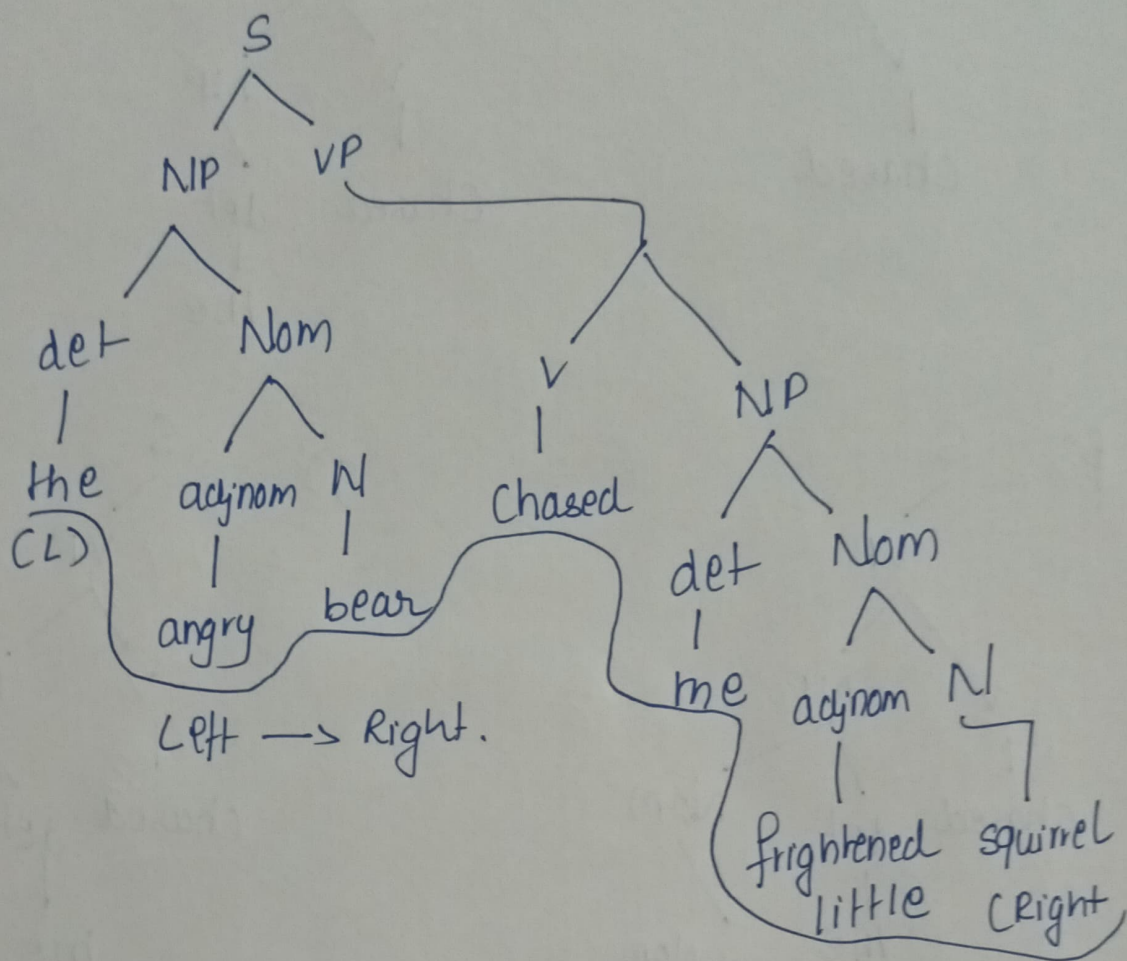 S
NP VP
det Nom V NP
the adjnom N Chased det Nom
(L) angry bear me adjnom N
Left → Right. frightened squirrel
little (Right